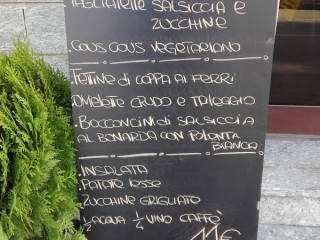 TAGLIATELLE SALSICCIA E
ZUCCHINE
. COUS COUS VEGETARIANO
FETTINE di COPPA AI FERRI
OMELETE CRUDO E TALEGGIO
. BOCCONCINI di SALSICCIA
AL BONARDA CON POLENTA
BIANCA
. INSALATA
. PATATE lesse
. ZUCCHINE GRIGLIATE
½ ACQUA ¼ VINO CAFFE'